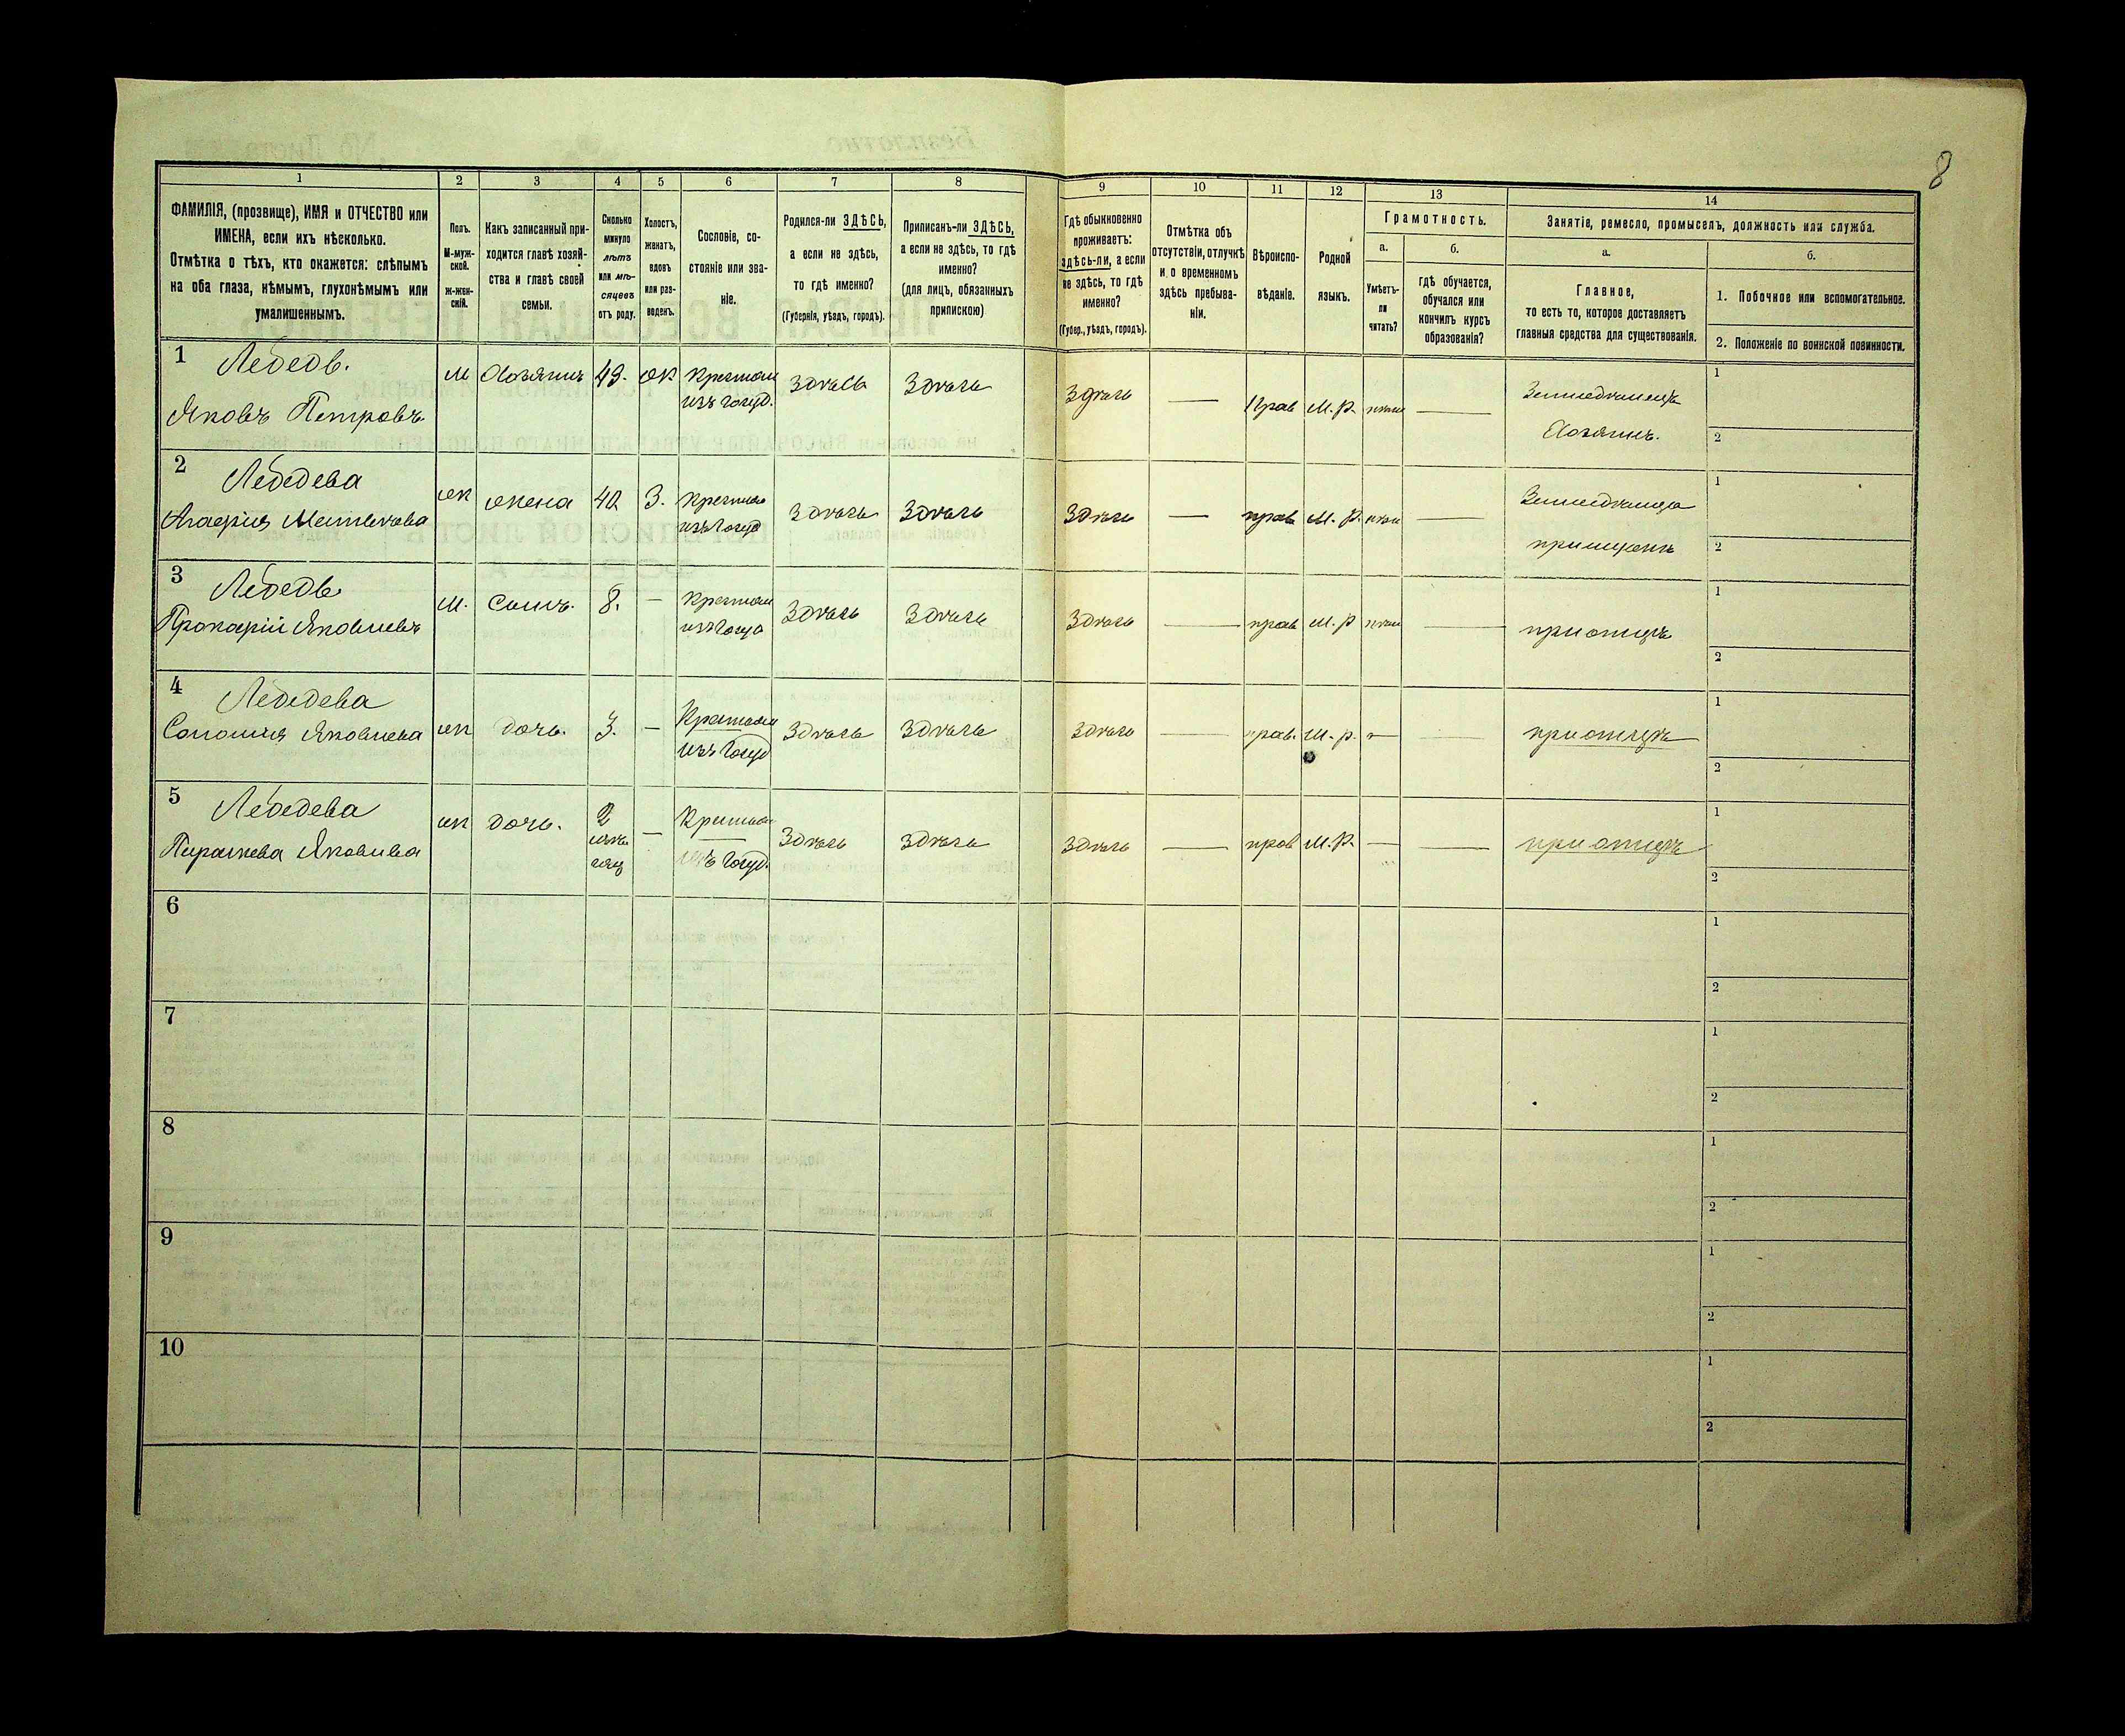 8
1 2 3 4 5 6 7 8 9 10 11 12 13 14
ФАМИЛІЯ, (прозвище), ИМЯ и ОТЧЕСТВО или
ИМЕНА, если ихъ нѣсколько.
Отмѣтка о тѣхъ, кто окажется: слѣпымъ
на оба глаза, нѣмымъ, глухонѣмымъ или
умалишеннымъ.
Полъ.
М-муж-
ской.
ж-жен-
скій.
Какъ записанный при-
ходится главѣ хозяй-
ства и главѣ своей
семьи.
Сколько
минуло
лѣтъ
или мѣ-
сяцевъ
отъ роду.
Холостъ,
женатъ,
вдовъ
или раз-
веденъ.
Сословіе, со-
стояніе или зва-
ніе.
Родился-ли ЗДѢСЬ,
а если не здѣсь,
то гдѣ именно?
(Губернія, уѣздъ, городъ).
Приписанъ-ли ЗДѢСЬ,
а если не здѣсь, то гдѣ
именно?
(для лицъ, обязанныхъ
припискою)
Гдѣ обыкновенно
проживаетъ:
здѣсь-ли, а если
не здѣсь, то гдѣ
именно?
(Губер., уѣздъ, городъ).
Отмѣтка объ
отсутствіи, отлучкѣ
и о временномъ
здѣсь пребыва-
ніи.
Вѣроиспо-
вѣданіе.
Родной
языкъ.
Грамотность.
а.
Умѣетъ-
ли
читать?
б.
гдѣ обучается,
обучался или
кончилъ курсъ
образованія?
Занятіе, ремесло, промыселъ, должность или служба.
а.
Главное,
то есть то, которое доставляетъ
главныя средства для существованія.
б.
1. Побочное или вспомогательное.
2. Положеніе по воинской повинности.
1 Лебедь.
Яковъ Петровъ
м Хозяинъ 43. ж
изъ госуд.
здѣсь здѣсь здѣсь — Прав М.Р. —
Хозяинъ.
1
2
2 Лебедева
жена З.
изъ госуд
здѣсь здѣсь здѣсь — прав М.Р. —
1
2
3 Лебедь
Яковлевъ
м. Сынъ. 8. —
изъ госуд
здѣсь здѣсь здѣсь — прав М.Р —
при отцѣ
1
2
4 Лебедева
Яковлева
ж дочь. 3. —
изъ госуд
здѣсь здѣсь здѣсь — прав. М.р. — —
при отцѣ
1
2
5 Лебедева
ж дочь. 2
мѣ
сяц
—
изъ госуд.
здѣсь здѣсь здѣсь — прав М.Р. — —
при отцѣ
1
2
6
1
2
7
1
2
8
1
2
9
1
2
10
1
2